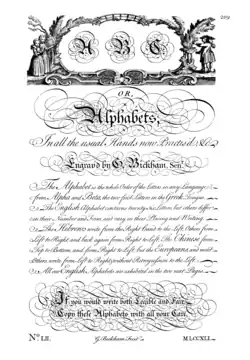 209
A B C,
OR,
Alphabets,
In all the usual Hands now Practis'd &c.
Engrav'd by G. Bickham Senr.
The Alphabet is the whole Order of the Letters in any Language
from Alpha and Beta, the two first Letters in the Greek Tongue.
The English Alphabet contains twenty six Letters, but others differ
in their Number and Form, and vary in their Placing and Writing.
The Hebrews write from the Right Hand to the Left, Others from
Left to Right, and back again from Right to Left, The Chineses from
Top to Bottom, and from Right to Left. But the Europeans and most
Others, write from Left to Right, without Retrogression to the Left.
All our English Alphabets are exhibited in the two next Pages.
If you would write both Legible and Fair,
Copy these Alphabets with all your Care.
No. LII.
G. Bickham Fecit
MDCCXLI.